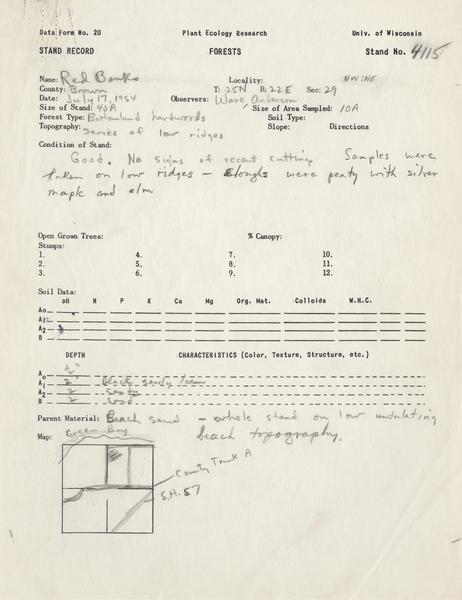 Data Form No. 20 Plant Ecology Research Univ. of Wisconsin
STAND RECORD FORESTS Stand No. 4115
Name: Red Banks Locality: NW:NE
County: Brown T: 25N R: 22E Sec: 29
Date: July 17, 1954 Observers: Ware, Anderson
Size of Stand: 40A Size of Area Sampled: 10A
Forest Type: Bottomland hardwoods Soil Type:
Topography: Series of low ridges Slope: Directions
Condition of Stand:
Good. No signs of recent cutting. Samples were
taken on low ridges - sloughs were peaty with silver
maple and elm
Open Grown Trees: % Canopy:
Stumps:
1. 4. 7. 10.
2. 5. 8. 11.
3. 6. 9. 12.
Soil Data:
pH N P K Ca Mg Org. Mat. Colloids W.H.C.
Ao
A1
A2
B
DEPTH CHARACTERISTICS (Color, Texture, Structure, etc.)
Ao ½"
A1 2" Black sandy loam
A2 2 Sandy
B 2 Sand
Parent Material: Beach sand - whole stand on low undulating
beach topography.
Map: Green Bay
County Trunk A
S.H. 57